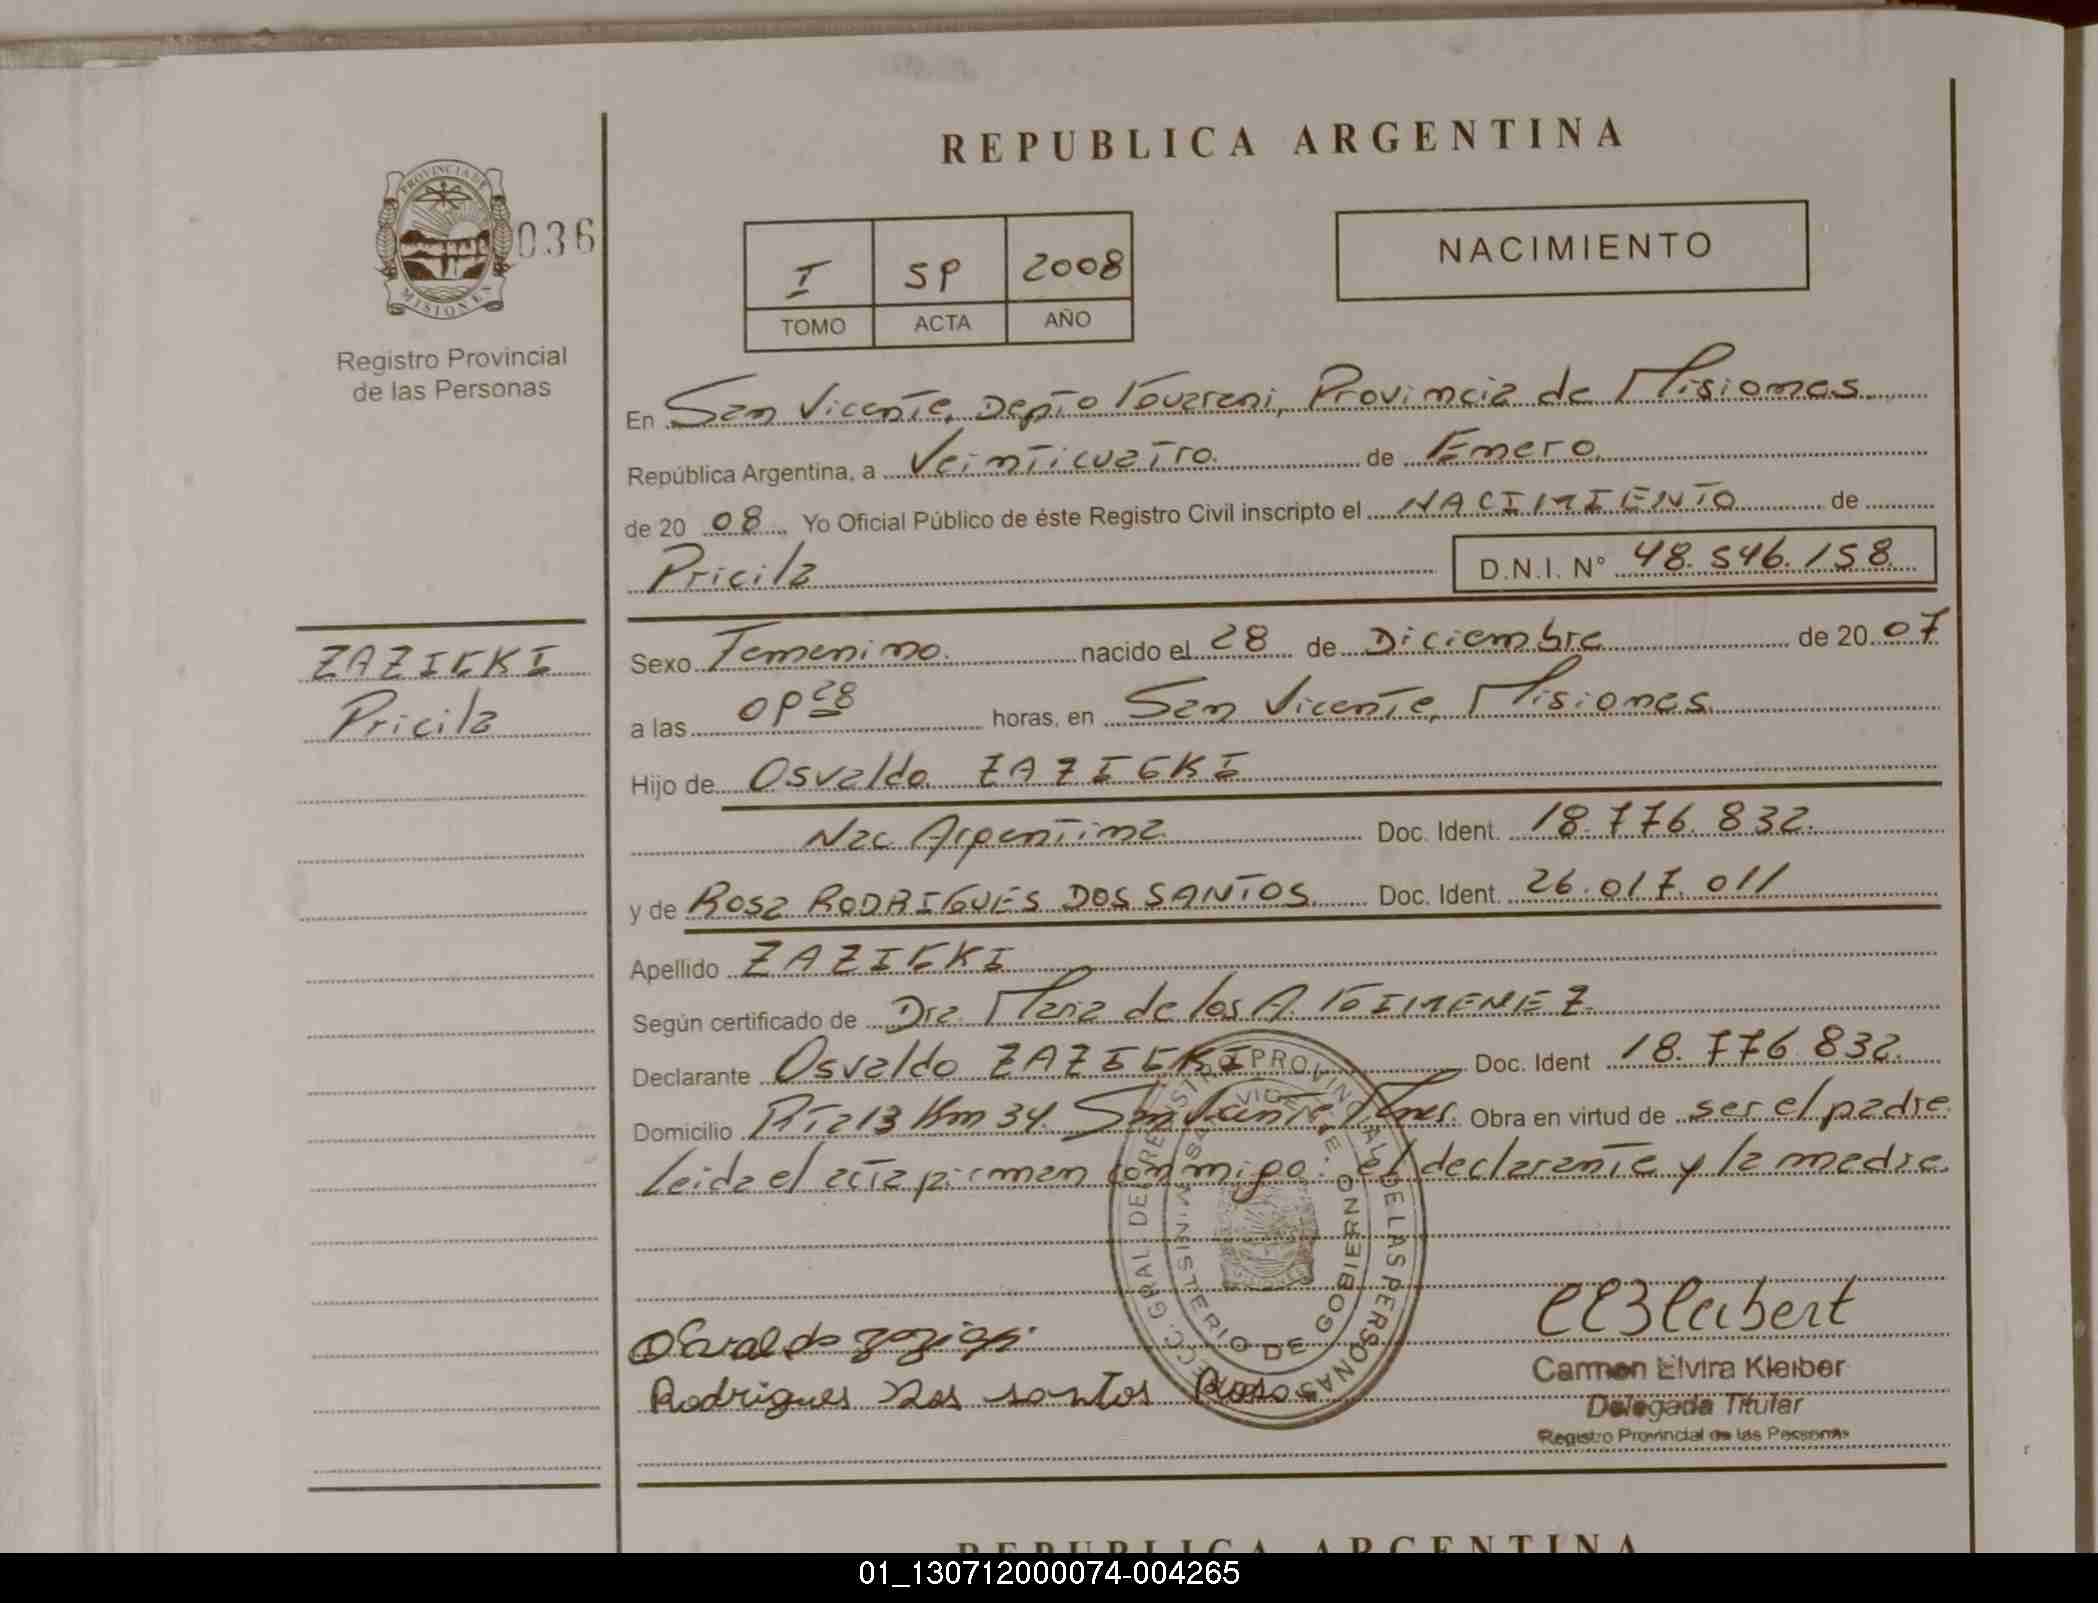 REPUBLICA ARGENTINA
PROVINCIA DE
MISIONES
036
Registro Provincial
de las Personas
I SP 2008
TOMO ACTA AÑO
NACIMIENTO
En San Vicente, Depto Guarani, Provincia de Misiones.
República Argentina, a Veinticuatro de Enero
de 20 08 Yo Oficial Público de éste Registro Civil inscripto el NACIMIENTO de
Pricila D.N.I. N° 48.546.158
ZAZIEKI
Pricila
Sexo Femenino. nacido el 28 de Diciembre de 20 07
a las horas, en San Vicente, Misiones.
Hijo de Osvaldo ZAZIEKI
Nac Argentina Doc. Ident. 18.776.832.
y de Rosa RODRIGUES DOS SANTOS Doc. Ident. 26.017.011
Apellido ZAZIEKI
Según certificado de Dra. Maria de los A. GIMENEZ
Declarante Osvaldo ZAZIEKI Doc. Ident 18.776.832.
Domicilio Rta 13 Km 34. San Vicente, Mnes. Obra en virtud de ser el padre
Leida el acta firman conmigo: el declarante y la madre.
DIRECC. GRAL. DE REGISTRO PROVINCIAL DE LAS PERSONAS
SAN VICENTE
MINISTERIO DE GOBIERNO
Osvaldo
Rodrigues Dos santos Rosa
Carmen Elvira Kleiber
Delegada Titular
Registro Provincial de las Personas
REPUBLICA ARGENTINA
01_130712000074-004265